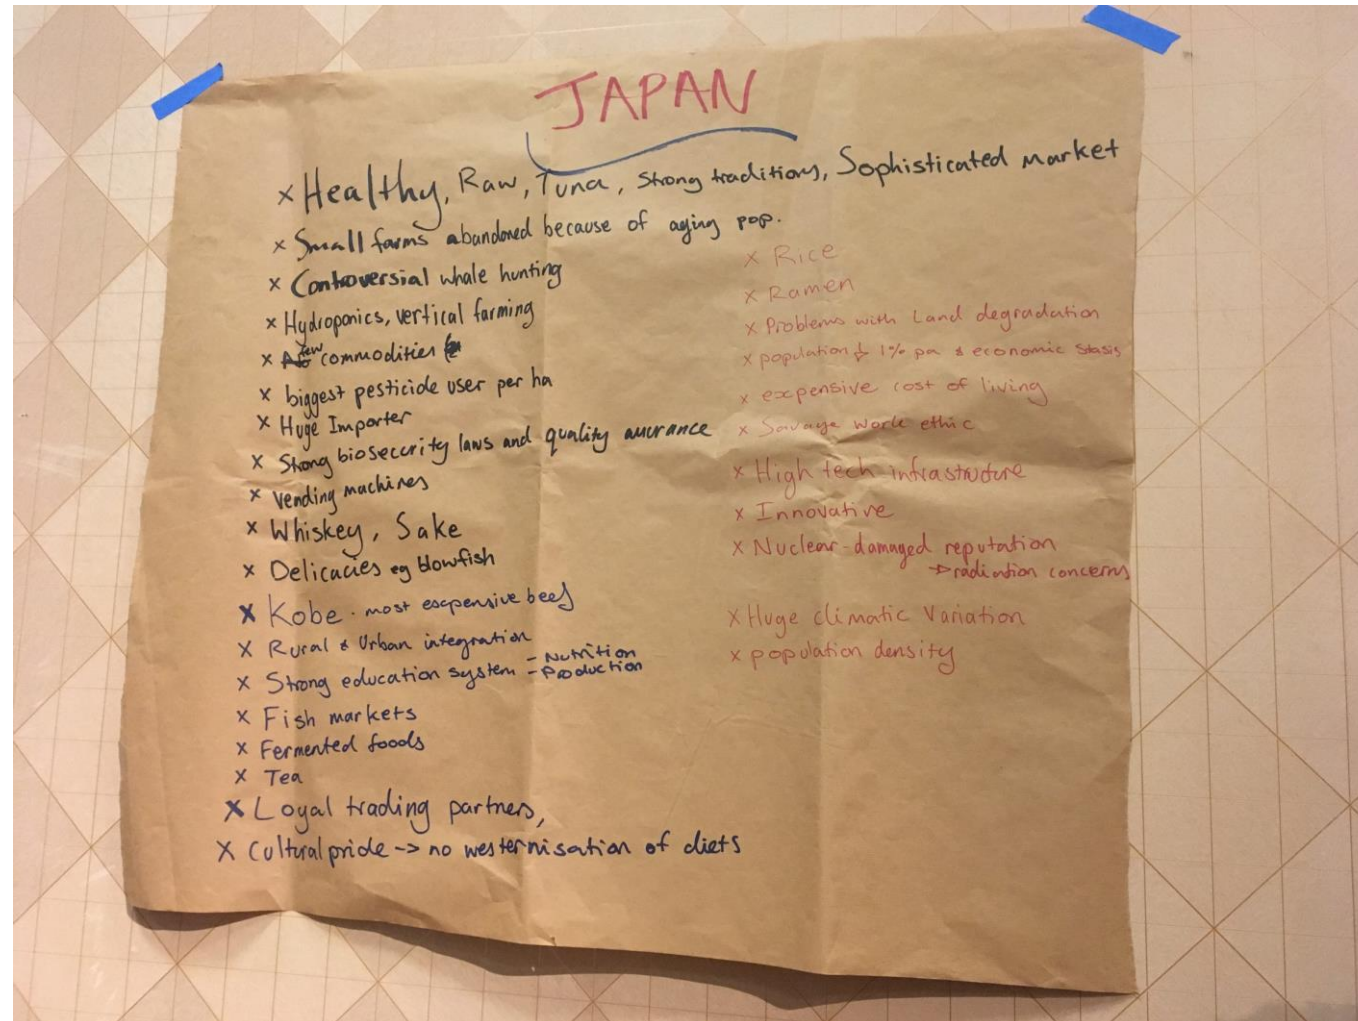 JAPAN
x Healthy, Raw, Tuna, Strong traditions, Sophisticated market
x Small farms abandoned because of aging pop.
x Controversial whale hunting
x Hydroponics, vertical farming
x few commodities
x biggest pesticide user per ha
x Huge Importer
x Strong biosecurity laws and quality assurance
x Vending machines
x Whiskey, Sake
x Delicacies eg blowfish
x Kobe - most expensive beef
x Rural & Urban integration
x Strong education system - Nutrition
- Production
x Fish markets
x Fermented foods
x Tea
x Loyal trading partners,
x Cultural pride -> no westernisation of diets
x Rice
x Ramen
x Problems with Land degradation
x population ↓ 1% pa & economic stasis
x expensive cost of living
x Savage work ethic
x High tech infrastructure
x Innovative
x Nuclear-damaged reputation
-> radiation concerns
x Huge climatic variation
x population density